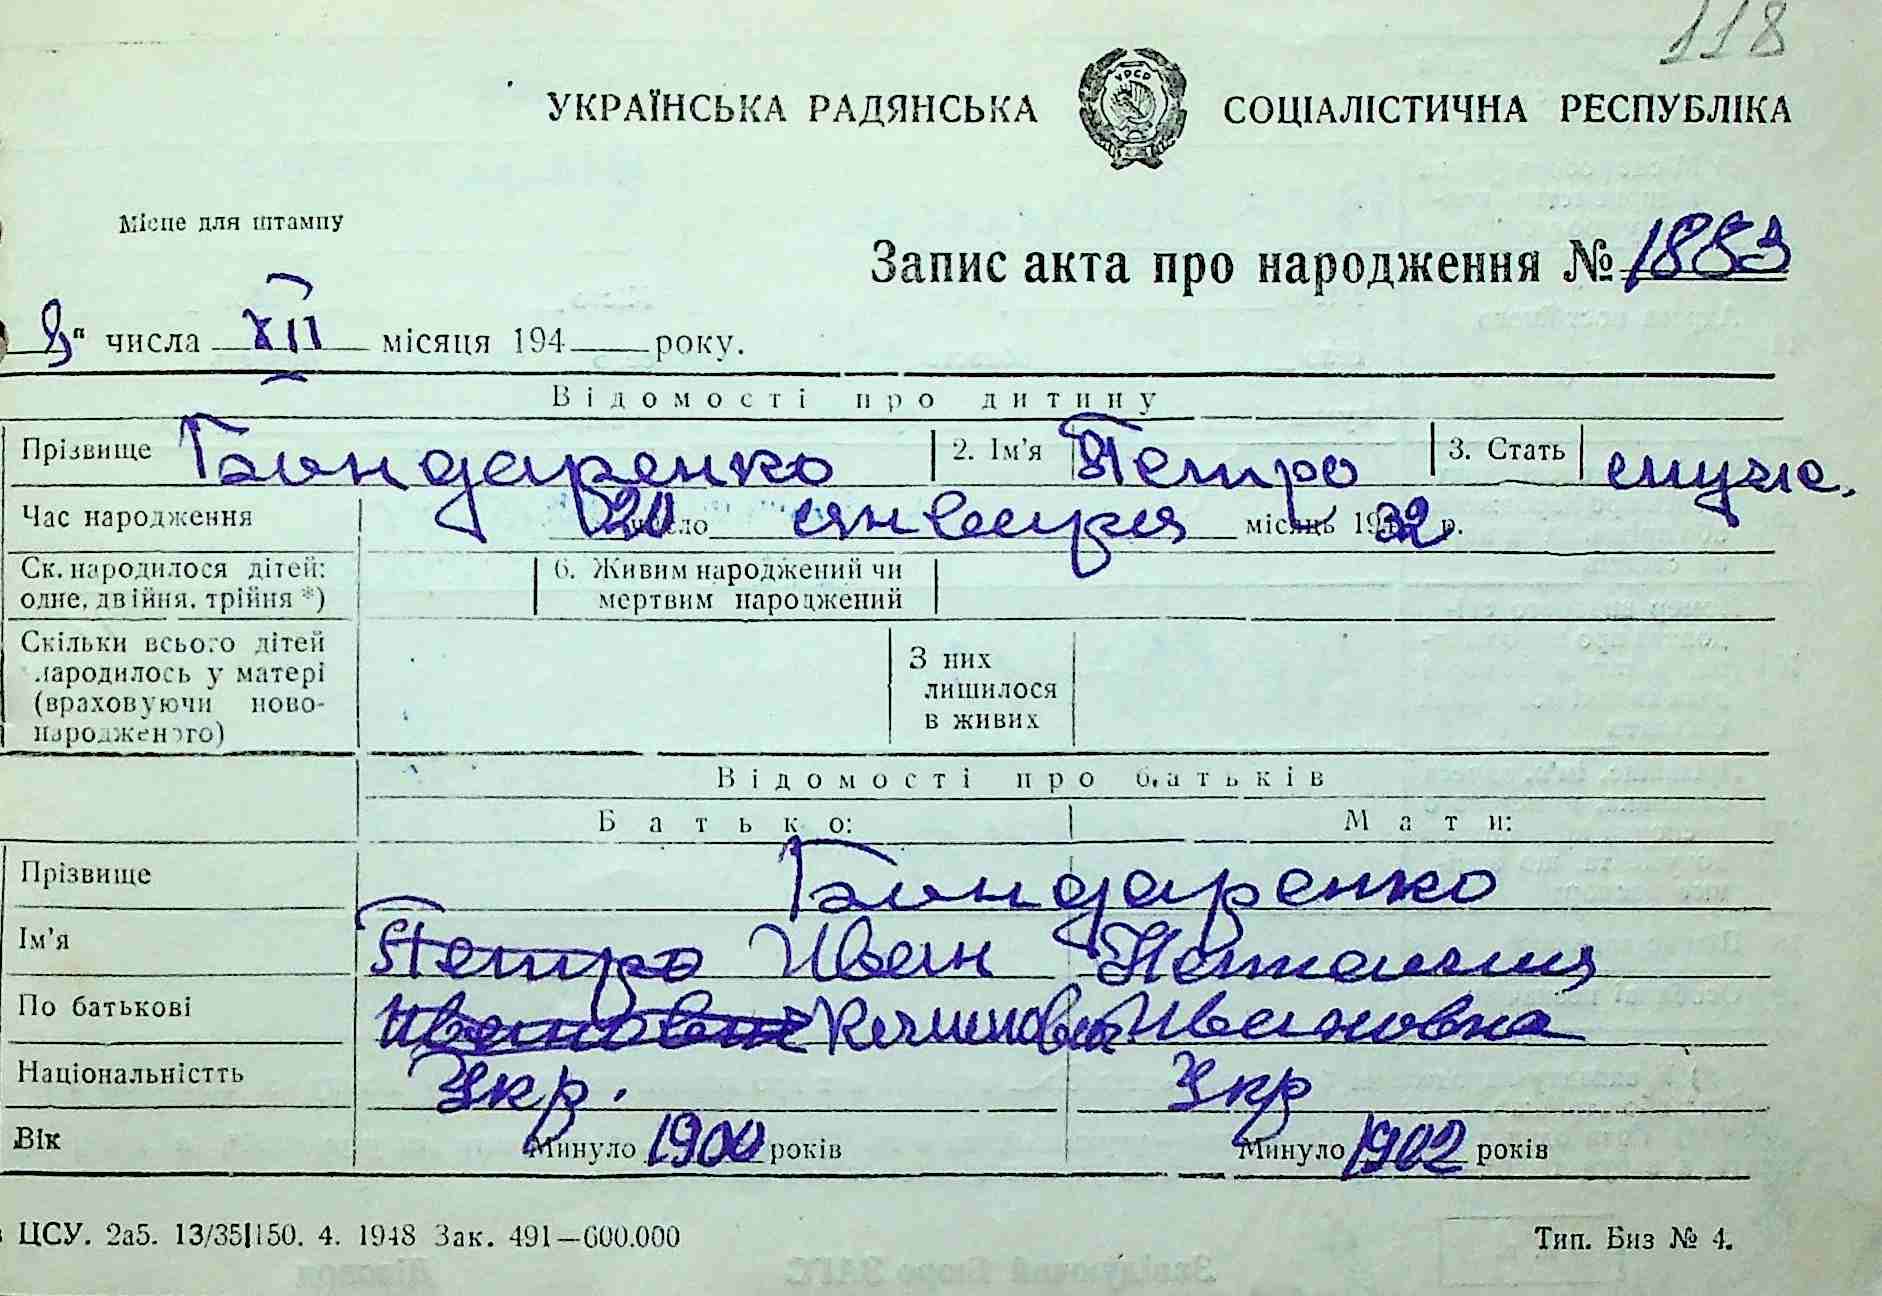 118
УКРАЇНСЬКА РАДЯНСЬКА СОЦІАЛІСТИЧНА РЕСПУБЛІКА
УРСР
Місце для штампу
Запис акта про народження № 1883
" числа XII місяця 194 року.
Відомості про дитину
Прізвище Бондаренко 2. Ім'я Петро 3. Стать муж.
Час народження 20 число января місяць 1932 р.
Ск. народилося дітей: 6. Живим народжений чи
одне, двійня, трійня *) мертвим народжений
Скільки всього дітей З них
народилось у матері лишилося
(враховуючи ново- в живих
народженого)
Відомості про батьків
Батько: Мати:
Прізвище Бондаренко
Ім'я Петро Иван Наталия
По батькові Иванович Ивановна
Національністть Укр. Укр
Вік Минуло 1900 років Минуло 1902 років
ЦСУ. 2а5. 13/35|150. 4. 1948 Зак. 491—600.000 Тип. Биз № 4.